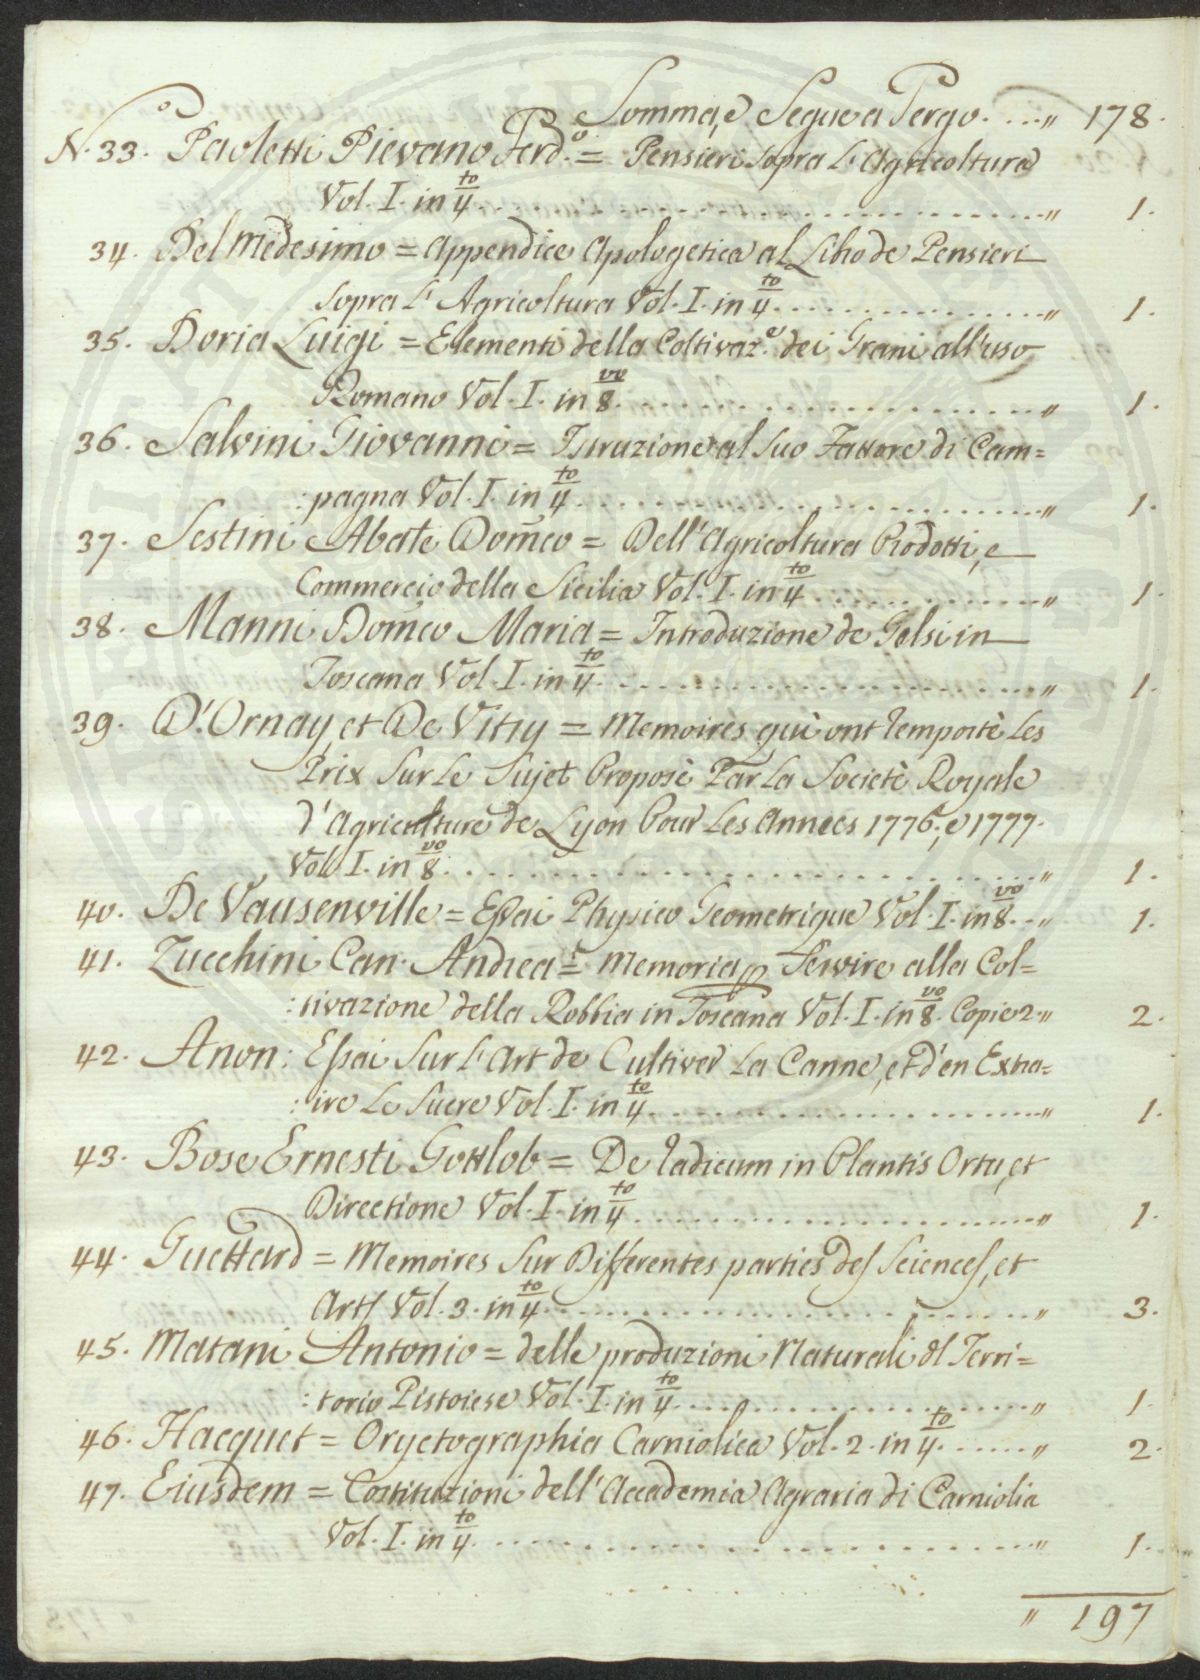 Somma, e Segue a Tergo. . . . „ 178.
N.° 33. Paoletti Pievano Ferd.° = Pensieri sopra L'Agricoltura
Vol. I. in 4to . . . . „ 1.
34. Del Medesimo = Appendice Apologetica al Libro de Pensieri
sopra L'Agricoltura Vol. I. in 4to . . . . „ 1.
35. Doria Luigi = Elementi della Coltivaz.e dei Grani all'uso
Romano Vol. I. in 8vo . . . . „ 1.
36. Salvini Giovanni = Istruzione al Suo Fattore di Cam=
:pagna Vol. I. in 4to . . . . „ 1.
37. Sestini Abate Dom̃co = Dell'Agricoltura Prodotti, e
Commercio della Sicilia Vol. I. in 4to . . . . „ 1.
38. Manni Dom̃co Maria = Introduzione de Gelsi in
Toscana Vol. I. in 4to . . . . „ 1.
39. D'Ornay, et De Vitry = Memoires qui ont Remportè Les
Prix Sur Le Sujet Proposè Par La Societè Royale
d'Agriculture de Lyon Pour Les Annees 1776, e 1777.
Vol. I. in 8vo . . . . „ 1.
40. De Vausenville = Essai Physico Geometrique Vol. I. in 8vo . . „ 1.
41. Zucchini Can. Andrea = Memoria p Servire alla Col=
:tivazione della Robbia in Toscana Vol. I. in 8vo Copie 2. „ 2.
42. Anon: Essai Sur L'Art de Cultiver La Canne, et d'en Extra=
:ire Le Sucre Vol. I. in 4to . . . . „ 1.
43. Bose Ernesti Gottlob = De Radicum in Plantis Ortu, et
Directione Vol. I. in 4to . . . . „ 1.
44. Guettard = Memoires Sur Differentes parties des Sciences, et
Arts Vol. 3. in 4to . . . . „ 3.
45. Matani Antonio = delle produzioni Naturali dl Terri=
:torio Pistoiese Vol. I. in 4to . . . . „ 1.
46. Hacquet = Oryctographia Carniolica Vol. 2. in 4to . . . . „ 2.
47. Eiusdem = Costituzioni dell'Accademia Agraria di Carniolia
Vol. I. in 4to . . . . „ 1.
„ 197